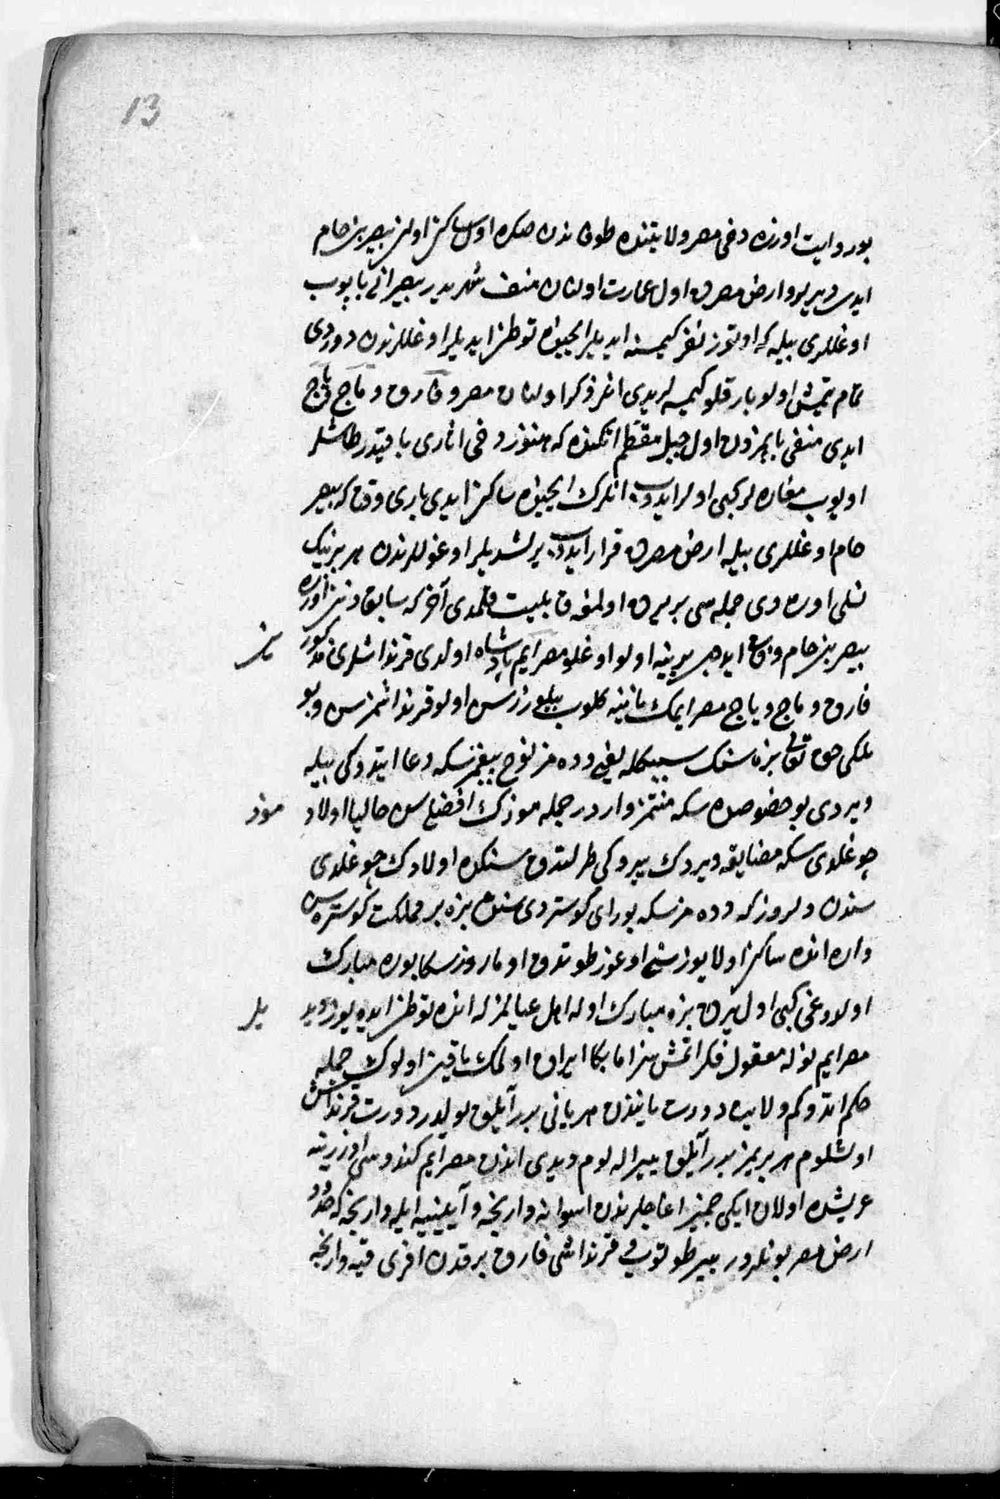 13
بو روایت اوزره دخی مصر ولایتنده طوفاندن صکره اول ساکن اولان بیصر بن حام
ایدی دیرلر و ارض مصرده اول عمارت اولنان منف شهریدر بیصر انی یاپوب
اوغللری بیله که اوتوز نفر کیمسنه ایدیلر ایچنده توطن ایدیلر اوغللرندن دوردی
تمام یتمش اولو بارقلو کیمسه لر ایدی انلر ذکر اولنان مصر و فارق و ماج و یاج
ایدی منفی یاپمزدن اول جبل مقطم اتکنده که هنوز دخی اثاری باقیدر طاشلر
اویوب مغاره لر کبی اولر ایدوب انلرک ایچنده ساکن ایدی باری وقتا که بیصر
حام اوغللری بیله ارض مصرده قرار ایدوب یرلشدیلر اوغوللرندن هر برینک
نسلی اوره دی جمله سی بر یرده اولمغه قابلیت قلمدی آخر که سابقا دنیز اوزره
بیصر بن حام وفات ایدجک یرینه اولو اوغلو مصرایم پادشاه اولدی قرنداشلری مذکور
فارق و ماج و یاج مصرایمک یانینه کلوب بیلورز سن اولو قرنداشمزسن و بو
ملکی حق تعالی بزه سنک سببکله یعنی دده مز نوح پیغمبر سکه دعا ایتدوکی بیله
ویردی بو خصوصده سکه منتمز واردر جمله موزک افضلی سن حالیا اولاد
موز
چوغلدی سکه مضایقه ویردک یرو کی طرلتدق سنکده اولادک چوغلدی
سندن دیلرز که دده مز سکه بورای کوستردی سنده بزه بر مملکت کوستره سن
واره انده ساکن اولا یوز سنی اوغز طوتدق اومارز سکا بوره مبارک
اولدوغی کبی اول یرده بزه مبارک اوله اهل عیالمزله انده توطن ایده یوز دید
یلر
مصرایم نوله معقول فکر اتمشسز اما بکا ایراق اولمک یاقین اولوک جمله
حکم اتدوکم ولایته دورت یانیندن هر یانی بر آیلق یولدر دورت قرنداش
اولشلوم هر بریمز بر آیلق ییر اله لوم دیدی اندن مصرایم کندوسی اوزرینه
عریشده اولان ایکی جمیز اغاجلرندن اسوانه وارنجه و آیلییه ایله وارنجه که حدود
ارض مصر بونلردر ییر طوتوب قرنداشی فارق برقدن افریقیه وارنجه